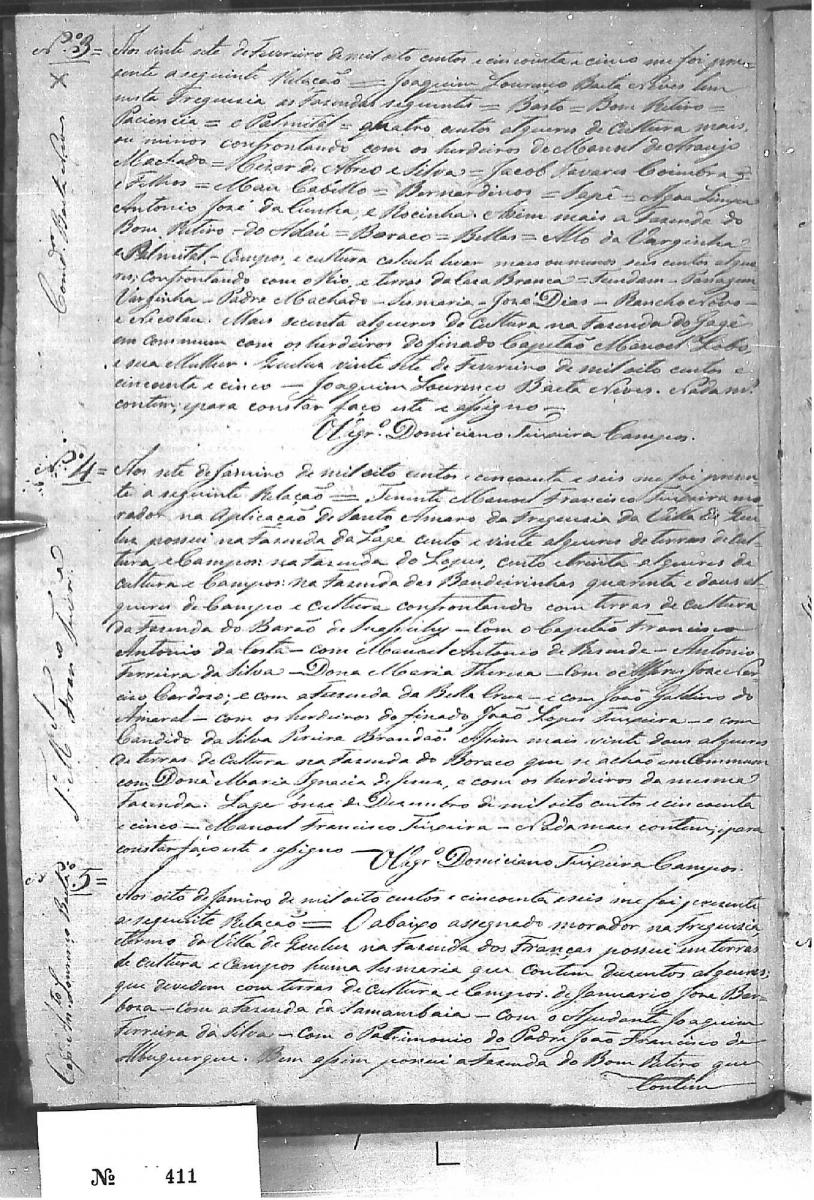 N.º 3=
Aos vinte sete de Fevereiro de mil oito centos e cincoenta e cinco me foi pre
zente a seguinte Relação = Joaquim Lourenco Baeta Neves tem
nesta Freguezia as Fazendas seguintes = Basto = Bom Retiro =
Paciencia = e Palmital = quatro centos alqueires de Cultura mais,
ou menos confrontando com os herdeiros de Manoel de Araujo
Machado = Cezar de Abreo e Silva = Jacob Tavares Coimbra =
e Filhos = Cabello = Bernardinos = Sapé = Agoa Limpa
Antonio José da Cunha, e Rocinha. Assim mais a Fazenda do
Bom Retiro - do = Boraco = Bellas = Alto da Varginha
e Palmital - Campos, e cultura calcula levar mais ou menos seis centos alquei
res; confrontando com o Rio, e terras da Caza Branca = Fundam - Passagem
Varginha - Padre Machado - Sismaria - José Dias - Rancho Novo -
e Nicolau. Mais secenta alqueires de cultura na Fazenda do Gagé
em commum com os herdeiros do finado Capitão Manoel Lobo,
e sua Mulher. Queluz vinte sete de Fevereiro de mil oito centos e
cincoenta e cinco - Joaquim Lourenco Baeta Neves. Nada m.
contem; e para constar faço este e assigno -
O Vigr.º Domiciano Teixeira Campos.
N.º 4=
Aos sete de Janeiro de mil oito centos e cincoenta e seis me foi prezen
te a seguinte Relação = Tenente Manoel Francisco Teixeira mo
rador na Aplicação de Santo Amaro da Freguezia da Villa de Que
luz possui na Fazenda da Lage cento e vinte alqueires de terras de cul
tura e Campos: na Fazenda do Lopes, cento e trinta alqueires de
cultura e Campos: na Fazenda das Bandeirinhas quarenta e dous al
queires de Campo e cultura confrontando com terras de cultura
da Fazenda do Barão de - Com o Capitão Francisco
Antonio da Costa - com Manoel Antonio de Rezende - Antonio
Ferreira da Silva - Dona Maria Thereza - Com o Alferes Joze
Cardozo; e com a Fazenda da Bella Cruz - e com João Galdino do
Amaral - com os herdeiros do finado João Lopes Teixeira - e com
Candido da Silva Pereira Brandão. Assim mais vinte dous alqueires
de terras de Cultura na Fazenda do Boraco que se achão em Commum
com Dona Maria Ignacia de Jesus, e com os herdeiros da mesma
Fazenda. Lage onze de Dezembro de mil oito centos e cincoenta
e cinco - Manoel Francisco Teixeira - Nada mais contem; e para
constar faço este e assigno - O Vigr.º Domiciano Teixeira Campos.
N.º 5=
Aos oito de Janeiro de mil oito centos e cincoenta e seis me foi prezente
a seguinte Relação = O abaixo assignado morador na Freguezia
e termo da Villa de Queluz na Fazenda dos Franças possue em terras
de cultura e Campos huma Sismaria que contem duzentos alqueires,
que devedem com terras de cultura e Campos de Januario Jose Bar
boza - com a Fazenda da Samambaia - com o Ajudante Joaquim
Ferreira da Silva - com o Patrimonio do Padre João Francisco de
Albuquerque. Bem assim possui a Fazenda do Bom Retiro que
Contem
Baeta Neves
T.e M.el Fran.co Teixr.a
Nº 411